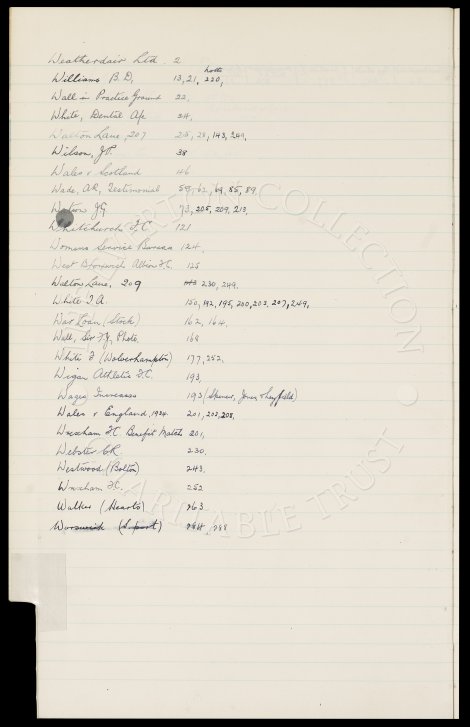 Weatherdair Ltd. 2
notts
Williams B.D. 13, 21, 220,
Wall in Practice Ground 22,
White, Dental A/c 34,
Walton Lane, 207 25, 28, 143, 249,
Wilson, J.P. 38
Wales v Scotland 46
Wade, A.R. Testimonial 59, 62, 69, 85, 89,
Watson J.G. 73, 205, 209, 213,
Whitchurch F.C. 121
Womens Service Bureau 124.
West Bromwich Albion F.C. 125
Walton Lane, 209 230, 249.
White T.A. 150, 192, 195, 200, 203, 207, 249,
War Loan (Stock) 162, 164.
Wall, Sir F.J. Photo, 168
White F (Wolverhampton) 177, 252,
Wigan Athletic F.C. 193,
Wages Increases 193 (Spencer, Jones & Leyfield)
Wales v England, 1934. 201, 203, 208,
Wrexham F.C. Benefit Match 201,
Webster C.R. 230,
Westwood (Bolton) 243,
Wrexham F.C. 252
Walker (Hearts) 263
Warswick 288
COLLECTION
CHARITABLE TRUST